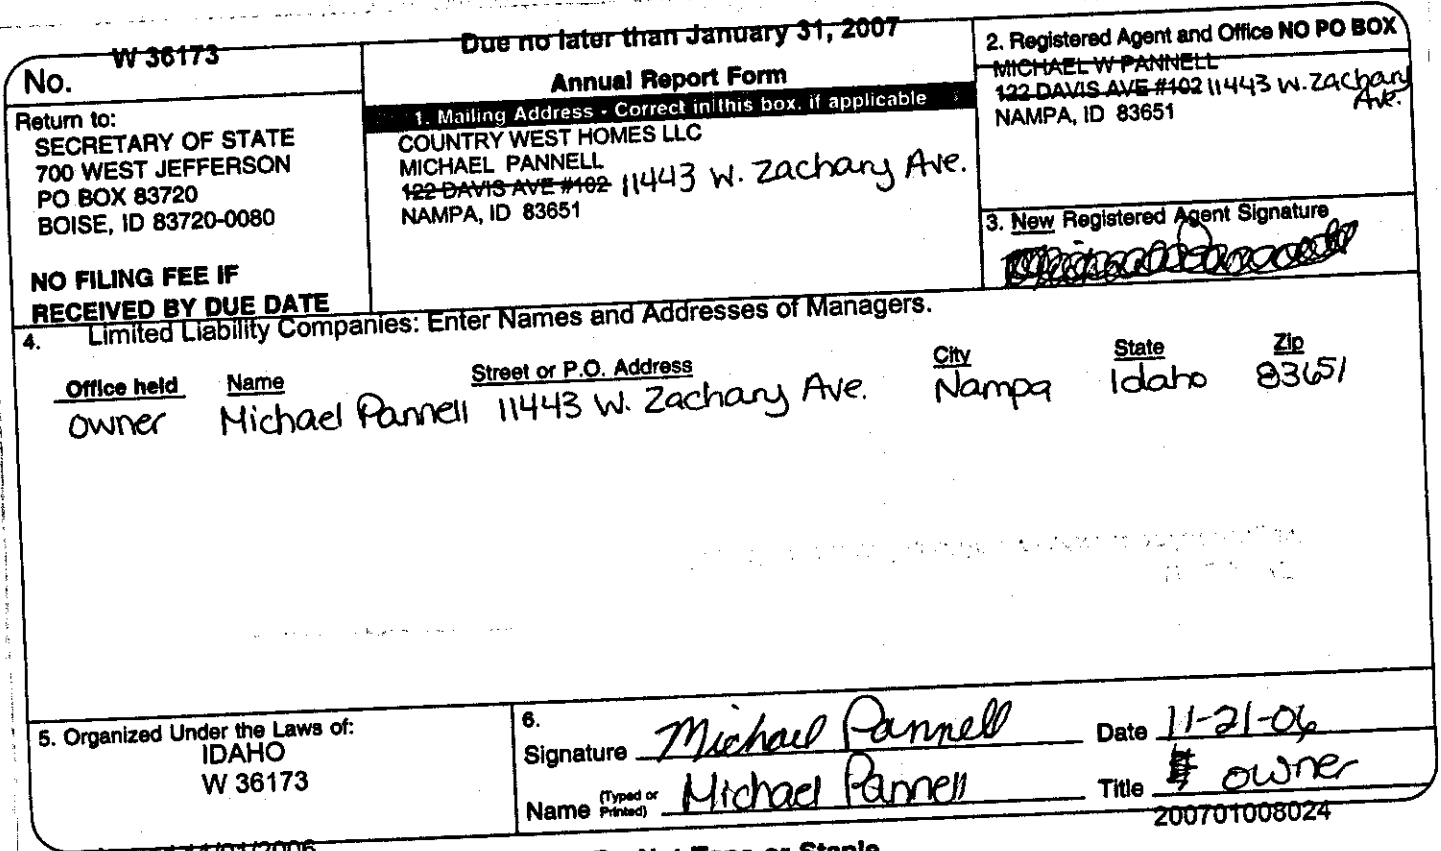 No. W 36173
Return to:
SECRETARY OF STATE
700 WEST JEFFERSON
PO BOX 83720
BOISE, ID 83720-0080
NO FILING FEE IF
RECEIVED BY DUE DATE
Due no later than January 31, 2007
Annual Report Form
1. Mailing Address - Correct in this box, if applicable
COUNTRY WEST HOMES LLC
MICHAEL PANNELL
122 DAVIS AVE #102 11443 W. Zachary Ave.
NAMPA, ID 83651
2. Registered Agent and Office NO PO BOX
MICHAEL W PANNELL
122 DAVIS AVE #102 11443 W. Zachary
Ave.
NAMPA, ID 83651
3. New Registered Agent Signature
4. Limited Liability Companies: Enter Names and Addresses of Managers.
Office held Name Street or P.O. Address City State Zip
owner Michael Pannell 11443 W. Zachary Ave. Nampa Idaho 83651
5. Organized Under the Laws of:
IDAHO
W 36173
6.
Signature Michael Pannell Date 11-21-06
Name (Typed or Printed) Michael Pannell Title owner
200701008024